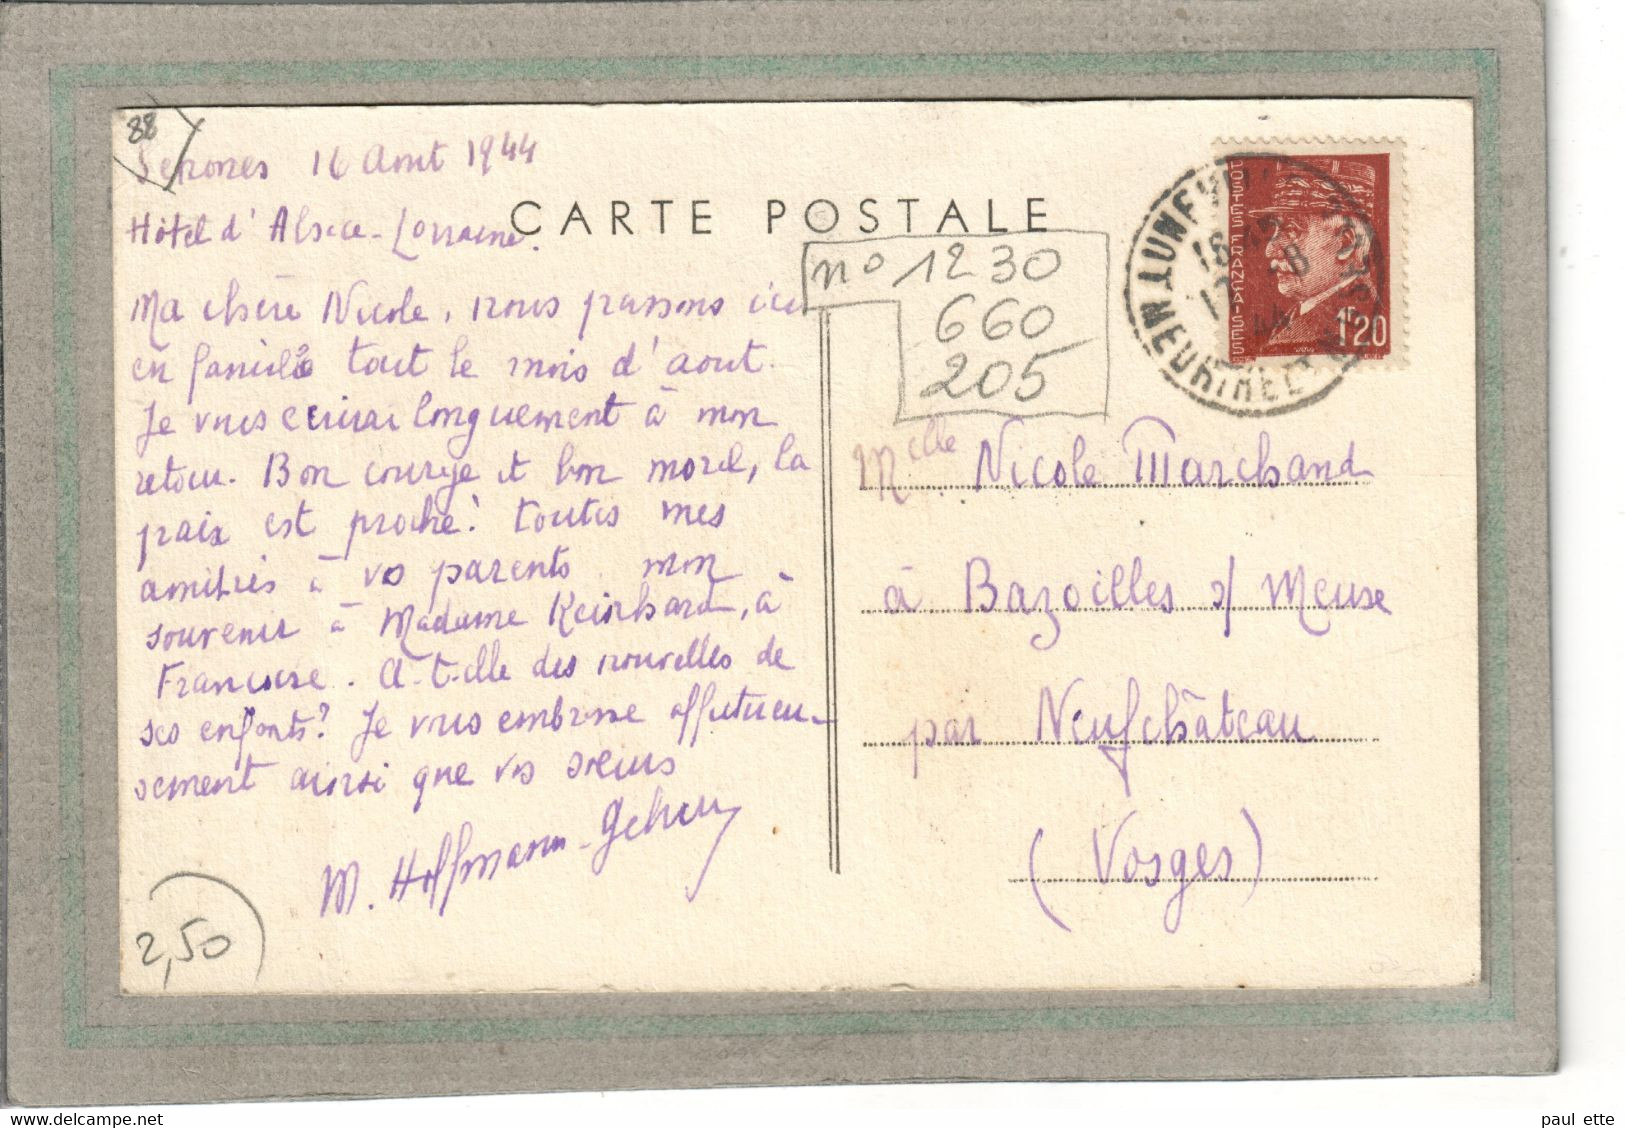 88
Senones 16 Aout 1944
Hôtel d'Alsace-Lorraine.
CARTE POSTALE
Ma chère Nicole, nous passons ici
en famille tout le mois d'aout.
Je vous ecrirai longuement à mon
retour. Bon courage et bon moral, la
paix est proche! toutes mes
amitiés à vos parents mon
souvenir à Madame Reinhard, à
Francoise. A-t-elle des nouvelles de
ses enfants? Je vous embrasse affectueu-
sement ainsi que vos soeurs
M. Hoffmann-
2,50
no 1230
660
205
POSTES FRANÇAISES
1f20
Melle Nicole Marchand
à Bazoilles s/ Meuse
par Neufchâteau
(Vosges)
paul ette